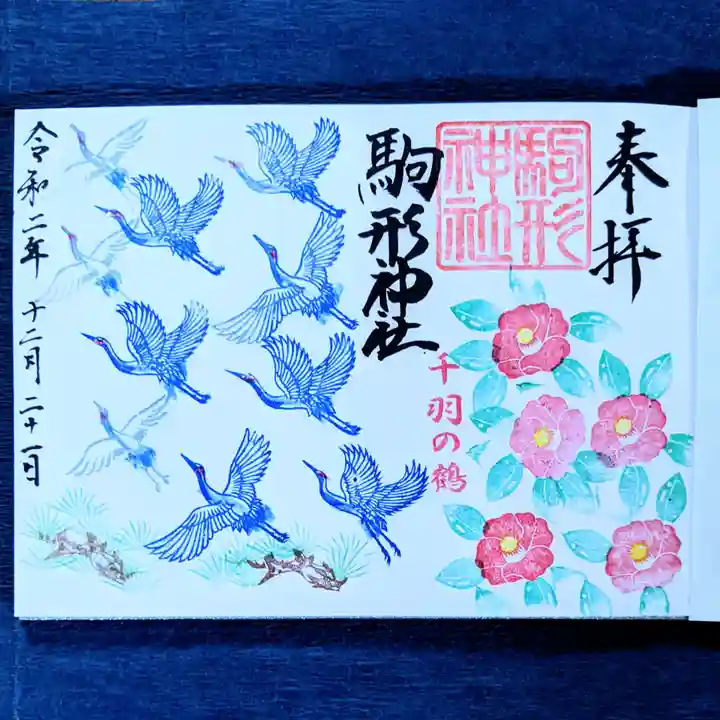 奉拝
駒形
神社
駒形神社
千羽の鶴
令和二年 十二月二十一日